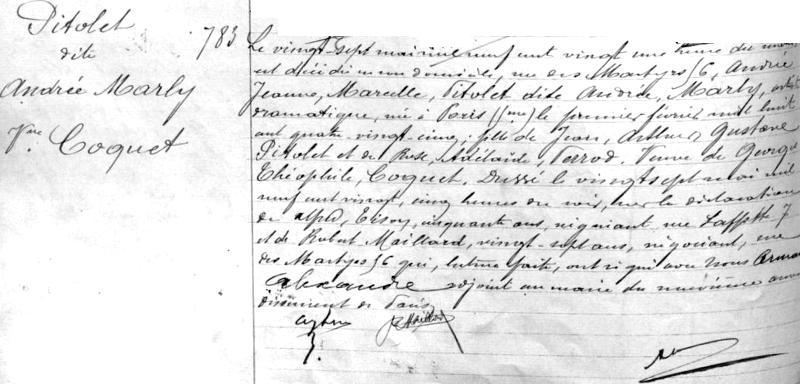 Pitolet
dite
Andrée Marly
Vve Coquet
783
Le vingt-sept mai mil neuf cent vingt une heure du
est décédé en son domicile, rue des Martyrs 56, Andrée
Jeanne, Marcelle, Pitolet dite Andrée, Marly, artiste
dramatique, née à Paris le premier février mil huit
cent quatre vingt-cinq; fille de Jean, Arthur, Gustave
Pitolet et de Rose, Adélaïde, Verrod. Veuve de Georges
Théophile, Coquet. Dressé le vingt sept mai mil
neuf cent vingt, cinq heures du soir, sur la déclaration
de cinquante ans, négociant, rue Laffitte 7
et de Robert Maillard, vingt-sept ans, négociant, rue
des Martyrs 56 qui, lecture faite, ont signé avec Nous
Alexandre adjoint au maire du neuvième arron
dissement de Paris